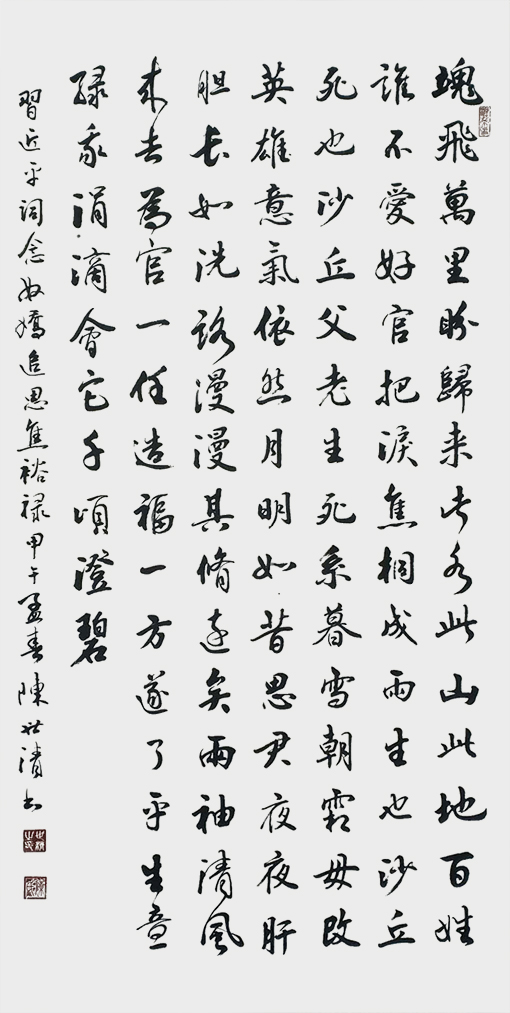 魂飛萬里盼歸来此水此山此地百姓
誰不愛好官把淚焦桐成雨生也沙丘
死也沙丘父老生死系暮雪朝霜毋改
英雄意氣依然月明如昔思君夜夜肝
胆长如洗路漫漫其脩远矣兩袖清風
来去為官一任造福一方遂了平生意
绿我涓滴會它千頃澄碧
習近平词念奴嬌追思焦裕禄甲午孟春陳世清书